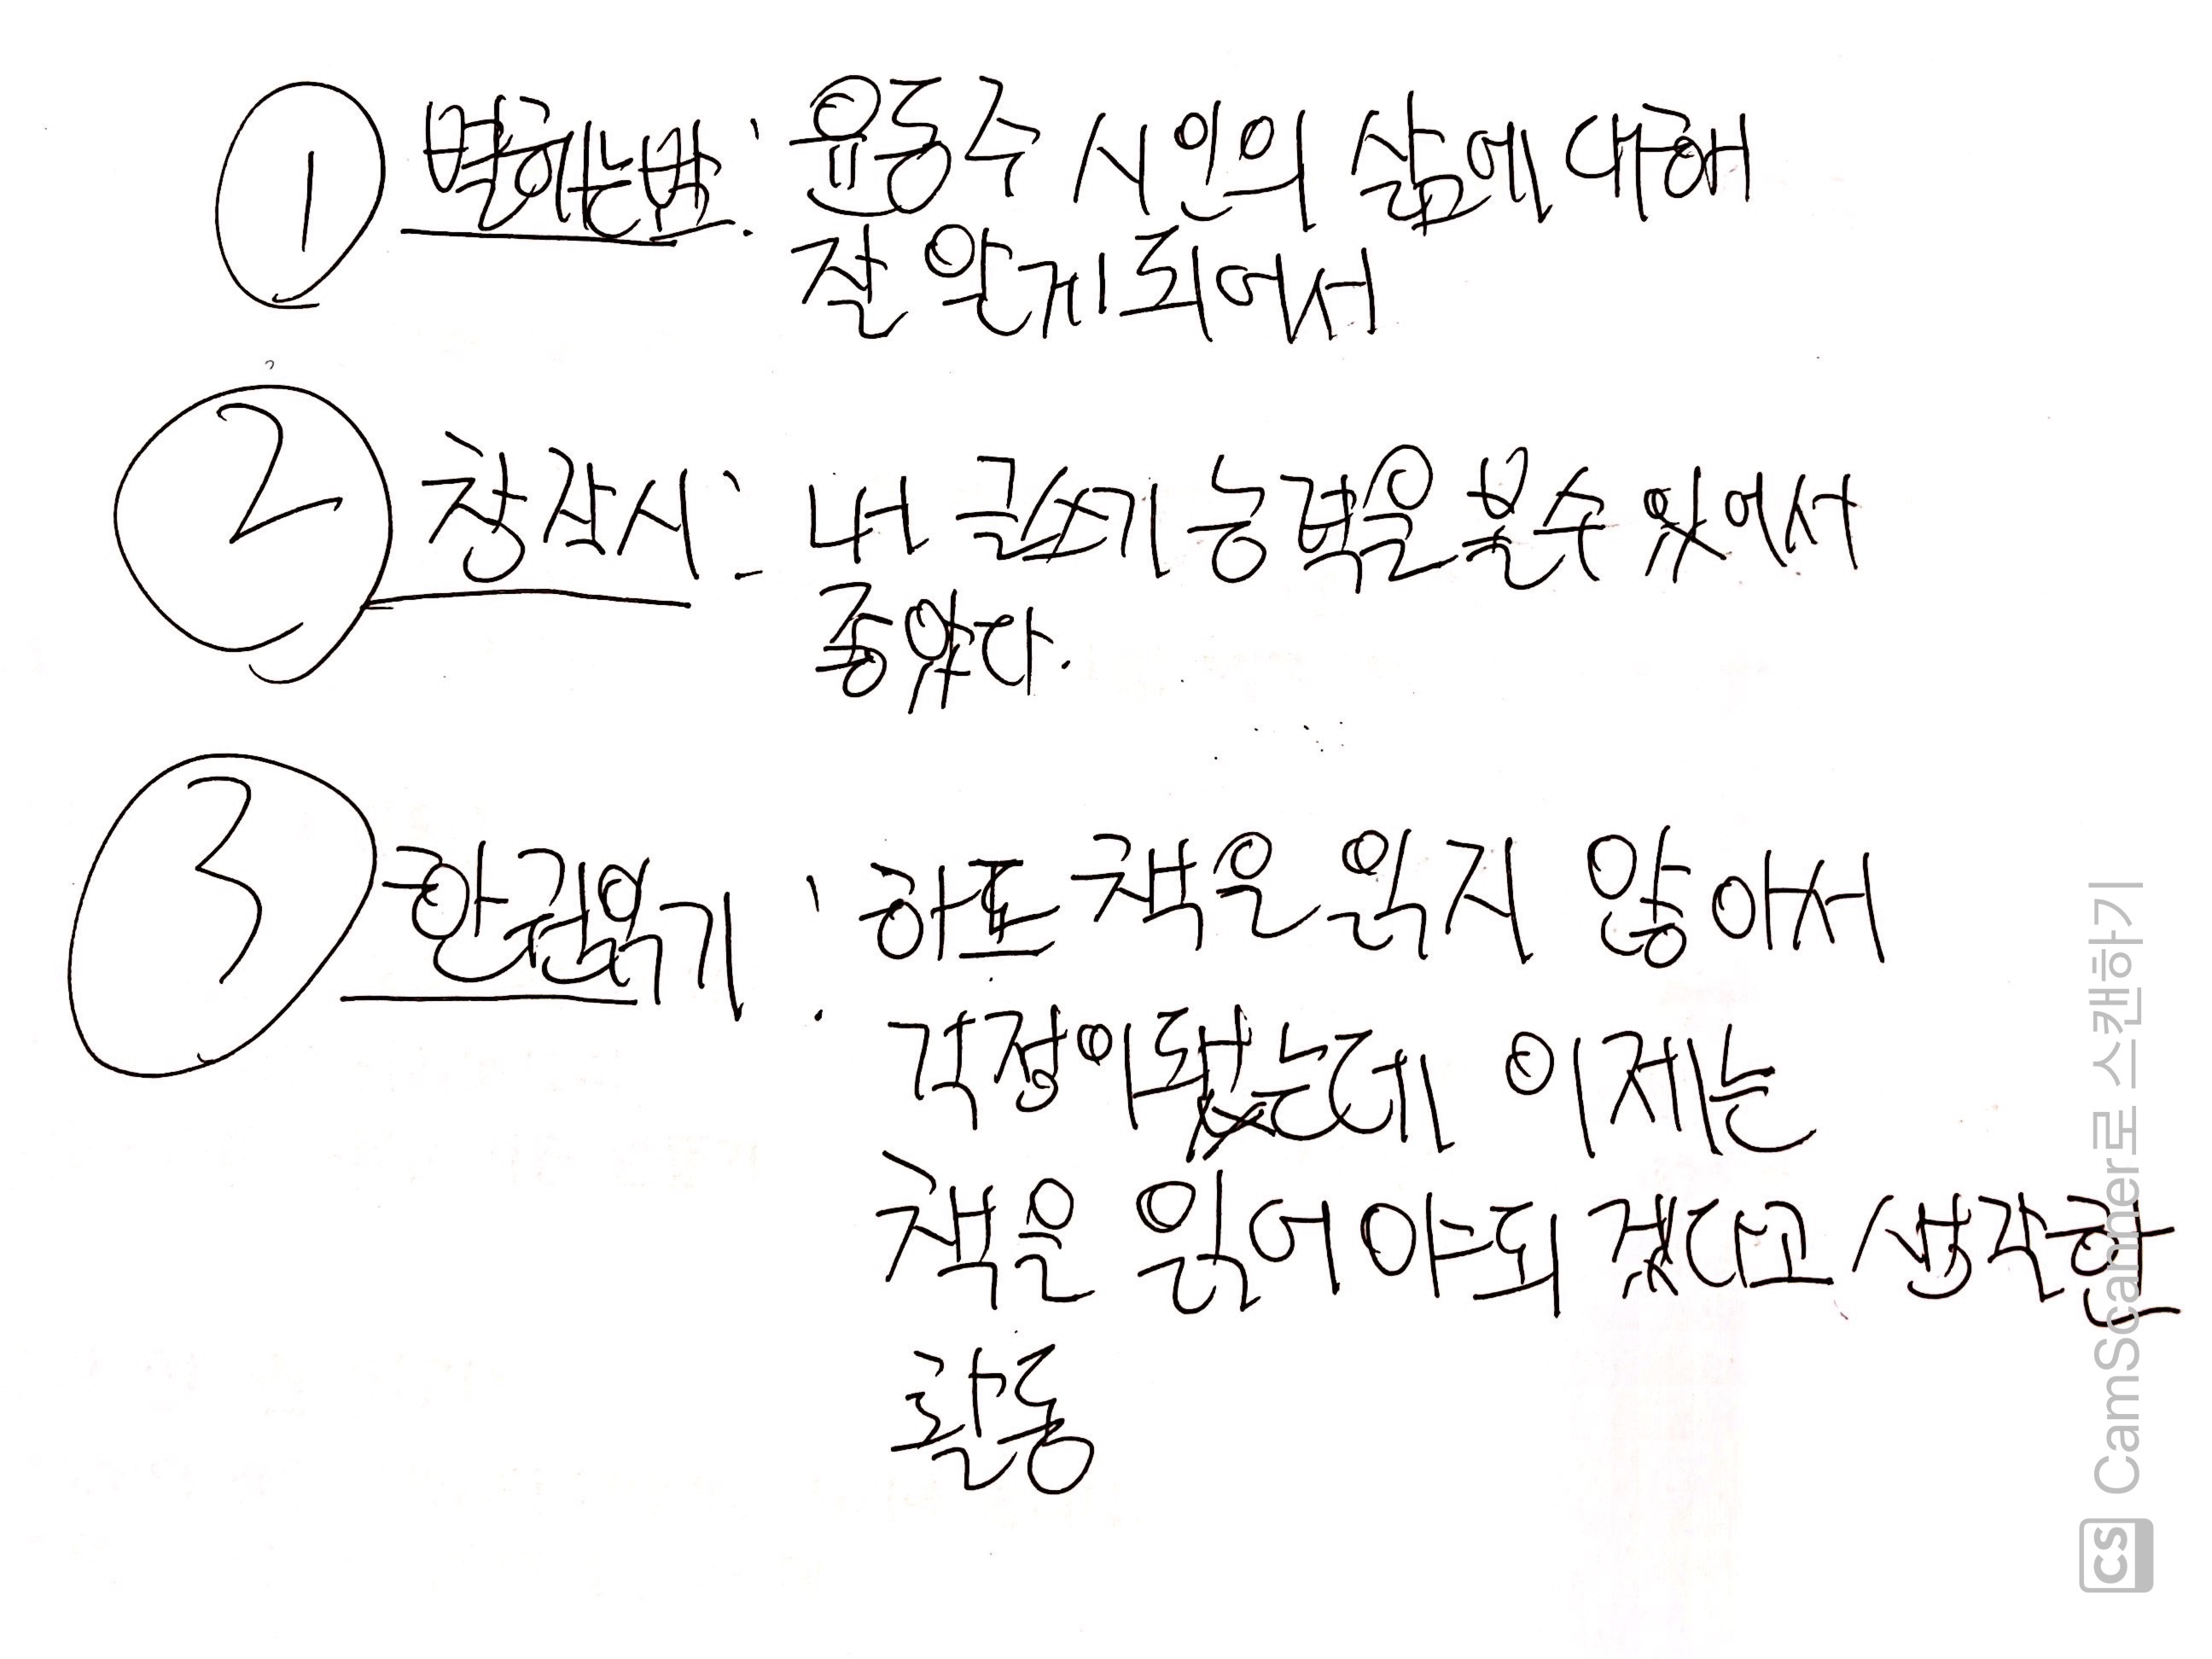 ① 별헤는밤: 윤동주 시인의 삶에 대해
잘 알게되어서
② 창작시: 내 글쓰기 능력을 볼수 있어서
좋았다.
③ 한권읽기: 하도 책을 읽지 않아서
걱정이 됐는데 이제는
책을 읽어야되겠다고 생각한
활동
CS CamScanner로 스캔하기